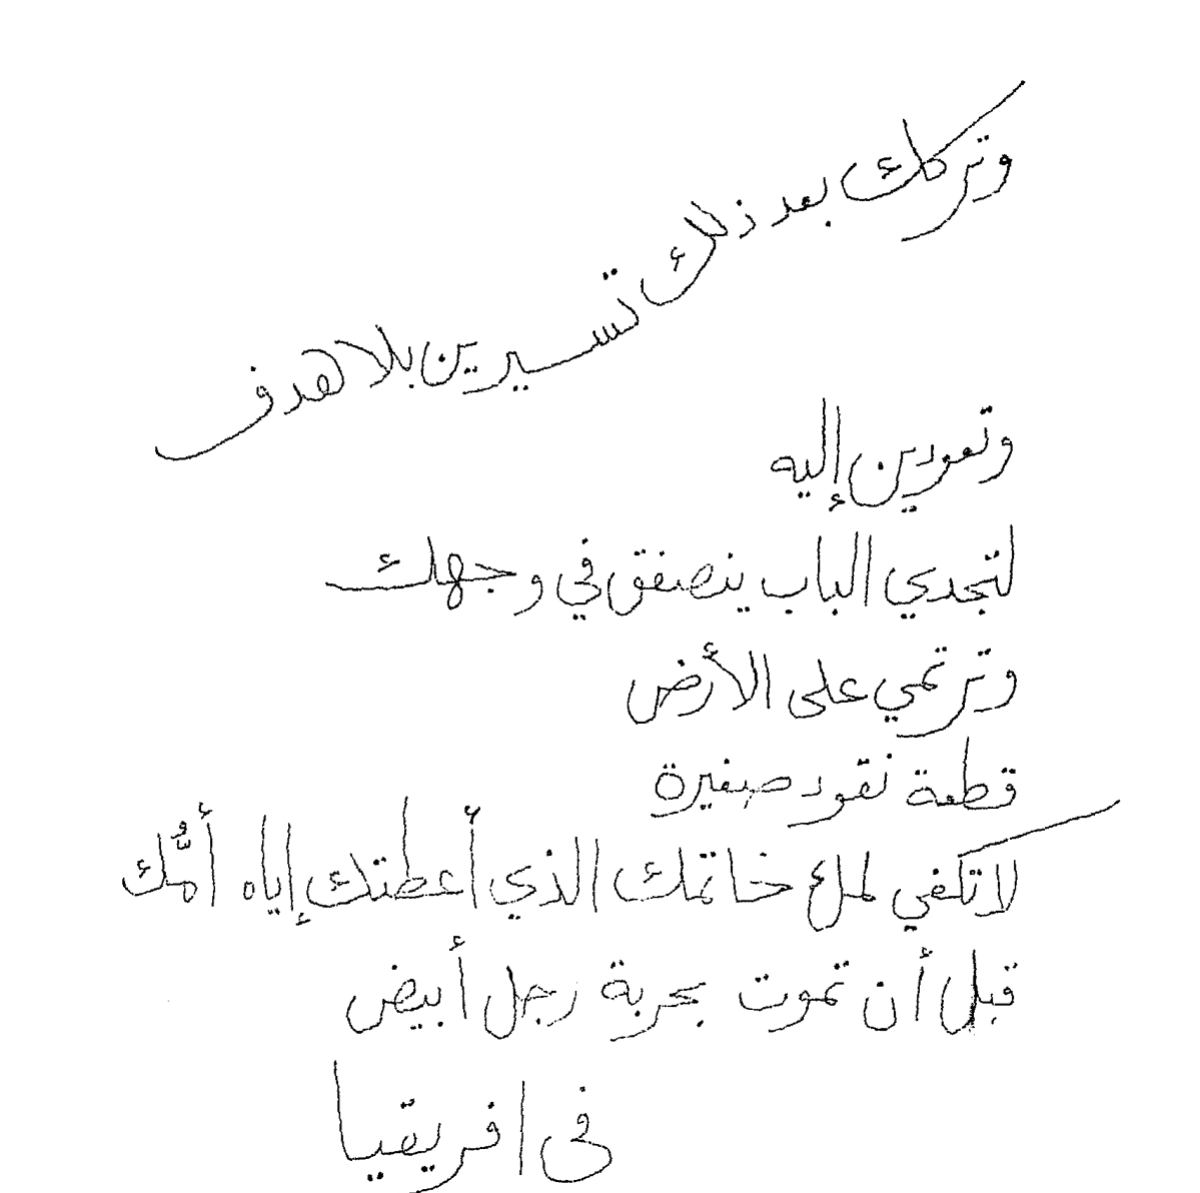 وتركك بعد ذلك تسيرين بلا هدف
وتعودين إليه
لتجدي الباب ينصفق في وجهك
وترتمي على الأرض
قطعة نقود صغيرة
لا تكفي لملء خاتمك الذي أعطتك إياه أمُّك
قبل أن تموت بحربة رجل أبيض
في افريقيا